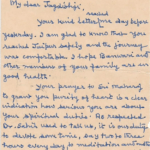 My dear Jagdishji,
Your kind letter day before
yesterday. I am glad to know that you
reached Jaipur safely and the journey
was comfortable. I hope and
other members of your family are in
good health.
Your prayer to Sri Maharaj
to grant you purity of heart is a clear
indication how serious you are about
your spiritual duties. As respected
Dr. Sahib used to tell us, it is
to devote some time, say two to three
hours every day to meditation and